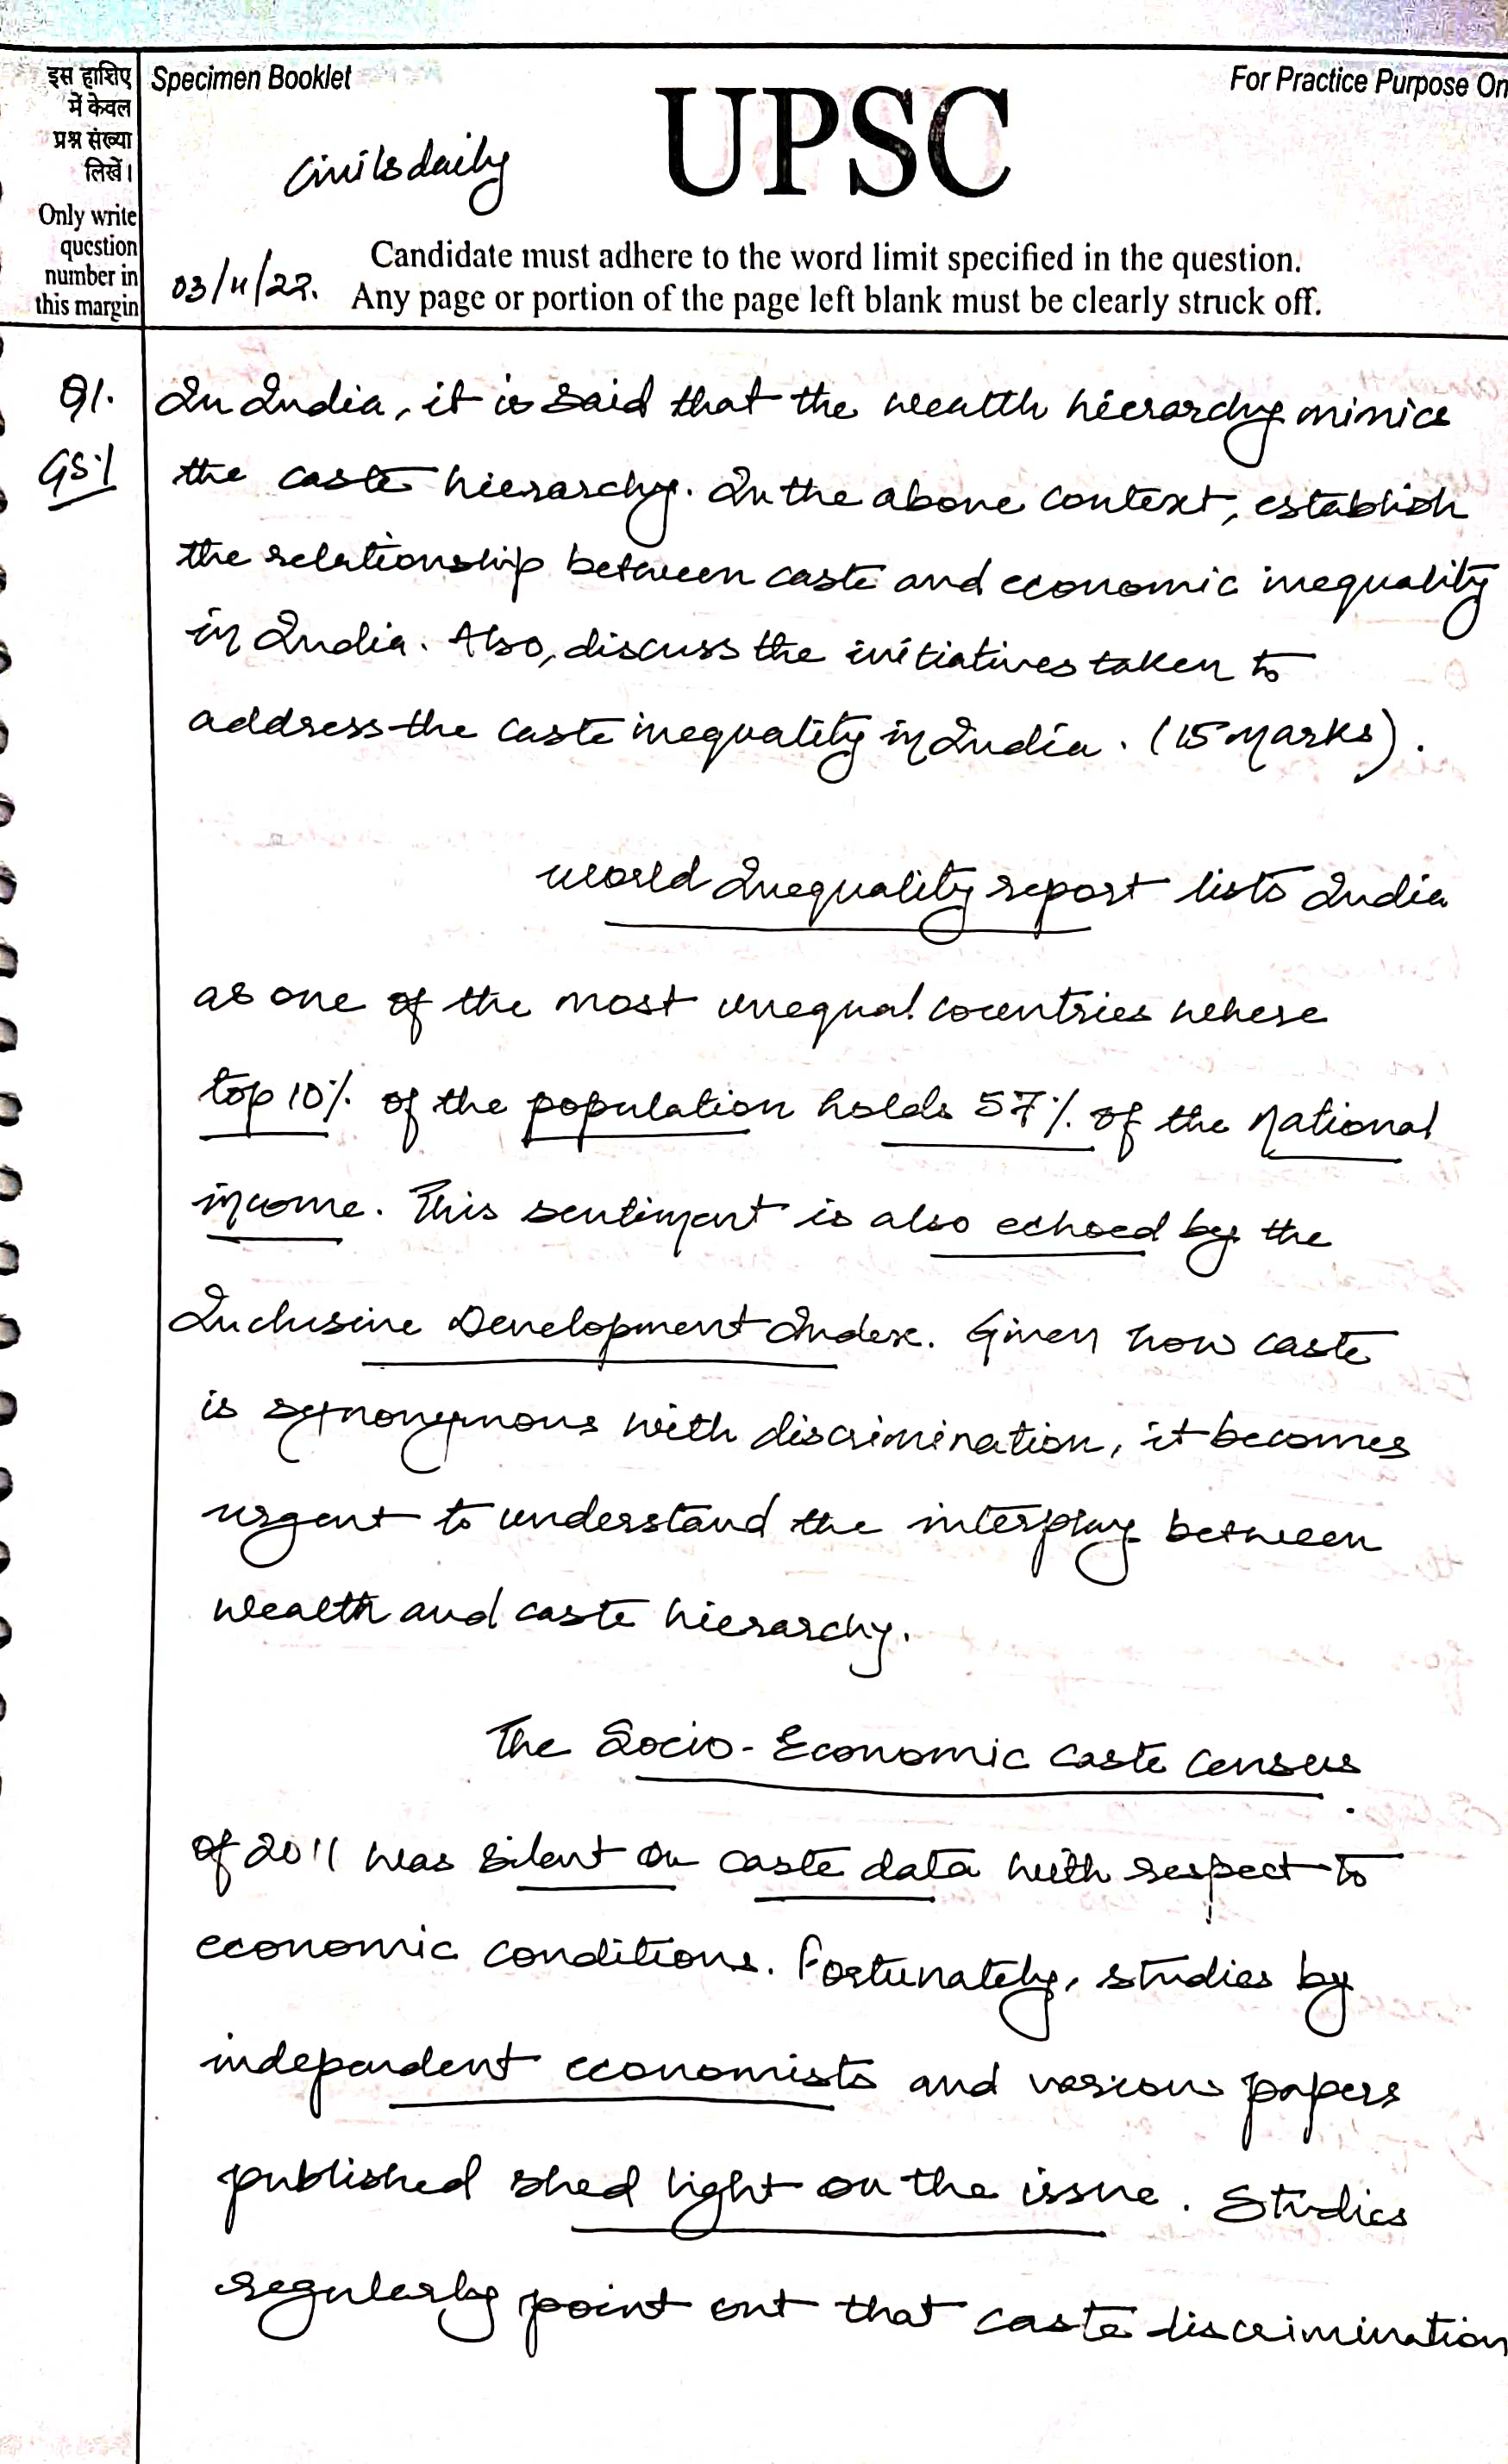 इस हाशिए
में केवल
प्रश्न संख्या
लिखें।
Only write
question
number in
this margin
Specimen Booklet
For Practice Purpose On
UPSC
Civilsdaily
03/11/22.
Candidate must adhere to the word limit specified in the question.
Any page or portion of the page left blank must be clearly struck off.
Q1.
GS.1
In India, it is said that the wealth hierarchy mimics
the caste hierarchy. In the above context, establish
the relationship between caste and economic inequality
in India. Also, discuss the initiatives taken to
address the caste inequality in India. (15 Marks).
World Inequality report lists India
as one of the most unequal countries where
top 10% of the population holds 57% of the National
income. This sentiment is also echoed by the
Inclusive Development Index. Given how caste
is synonymous with discrimination, it becomes
urgent to understand the interplay between
wealth and caste hierarchy.
The Socio-Economic Caste Census
of 2011 was silent on caste data with respect to
economic conditions. Fortunately, studies by
independent economists and various papers
published shed light on the issue. Studies
regularly point out that caste discrimination